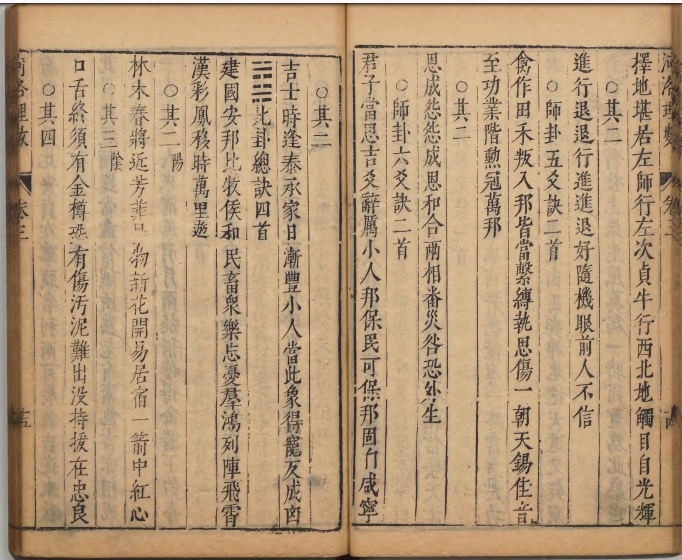 河洛理數
擇地堪居左師行左次貞牛行西北地觸目自光輝
○其二
進行退退行進進退好隨機眼前人不信
○師卦五爻訣二首
禽作田禾叛入邦皆當繫縛執思傷一朝天錫佳音
至功業階勲冠萬邦
○其二
恩成怨怨成恩和合兩相畨災咎恐外生
○師卦六爻訣二首
君子當恩吉爻辭厲小人那保民可保那固自咸寧
○其二
吉士時逢泰承家日漸豐小人當此象得寵反成凶
䷇此卦總訣四首
建國安邦比牧侯和民畜衆樂忘憂羣鴻列陣飛霄
漢彩鳳移時萬里遊
○其二陽
林木春將近芳菲 物新花開易居宿一箭中紅心
○其三陰
口舌終須有金樽恐有傷汚泥難出没持援在忠良
○其四
河洛理數
卷三